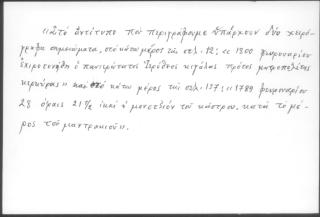 «Στὸ ἀντίτυπο ποὺ περιγράφουμε ὑπάρχουν δύο χειρό-
γραφα σημειώματα, στὸ κάτω μέρος τῆς σελ. 12; «1800 φευρουαρίου
ἐχιροτονήθη ὁ πανιερώτατος Ἱερόθεος κιγάλας πρῶτος μητροπολίτης
κερκύρας» καὶ στὸ κάτω μέρος τῆς σελ. 137; «1789 φευρουαρίου
28 ὁραις 21 ½ ἐκαὶ ἡ μονετζιόν τοῦ κάστρου, κατὰ τὸ μέ-
ρος τοῦ μαντρακιοῦ».